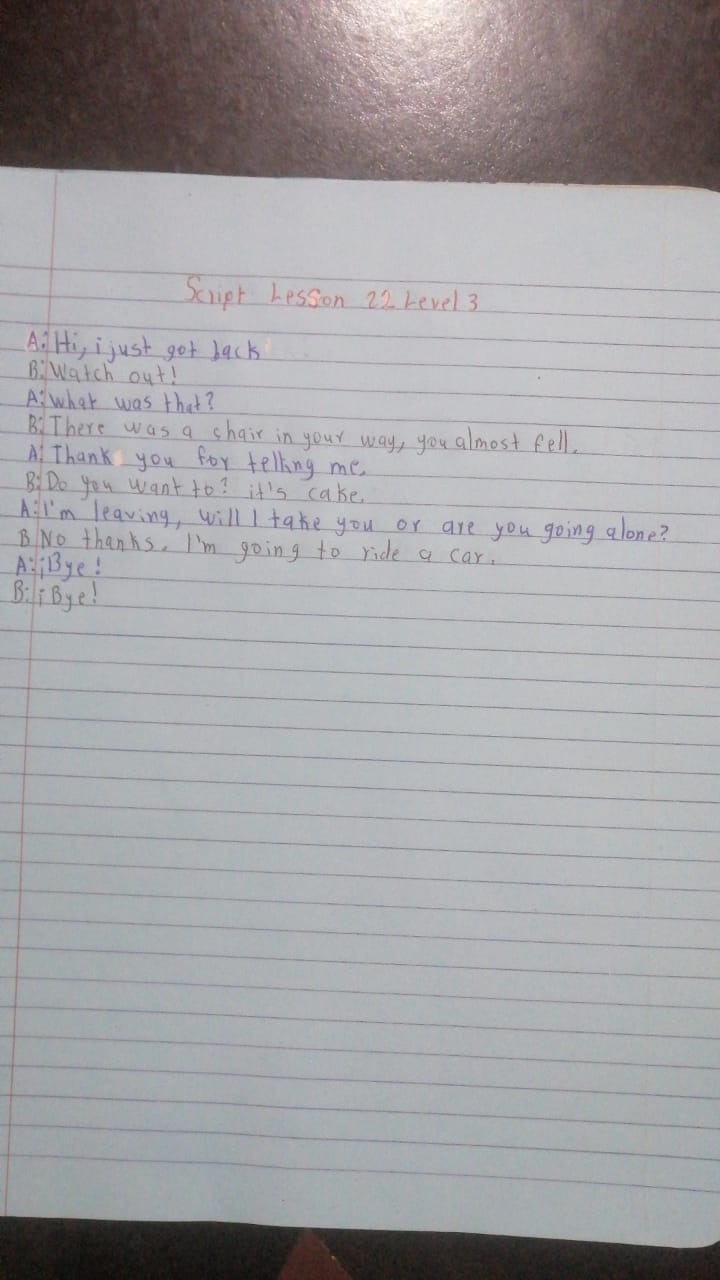 Script Lesson 22 Level 3
A: Hi, i just got back
B: Watch out!
A: What was that?
B: There was a chair in your way, you almost fell.
A: Thank you for telling me.
B: Do you want to? it's cake.
A: I'm leaving, will I take you or are you going alone?
B No thanks. I'm going to ride a car.
A: ¡Bye!
B: ¡Bye!